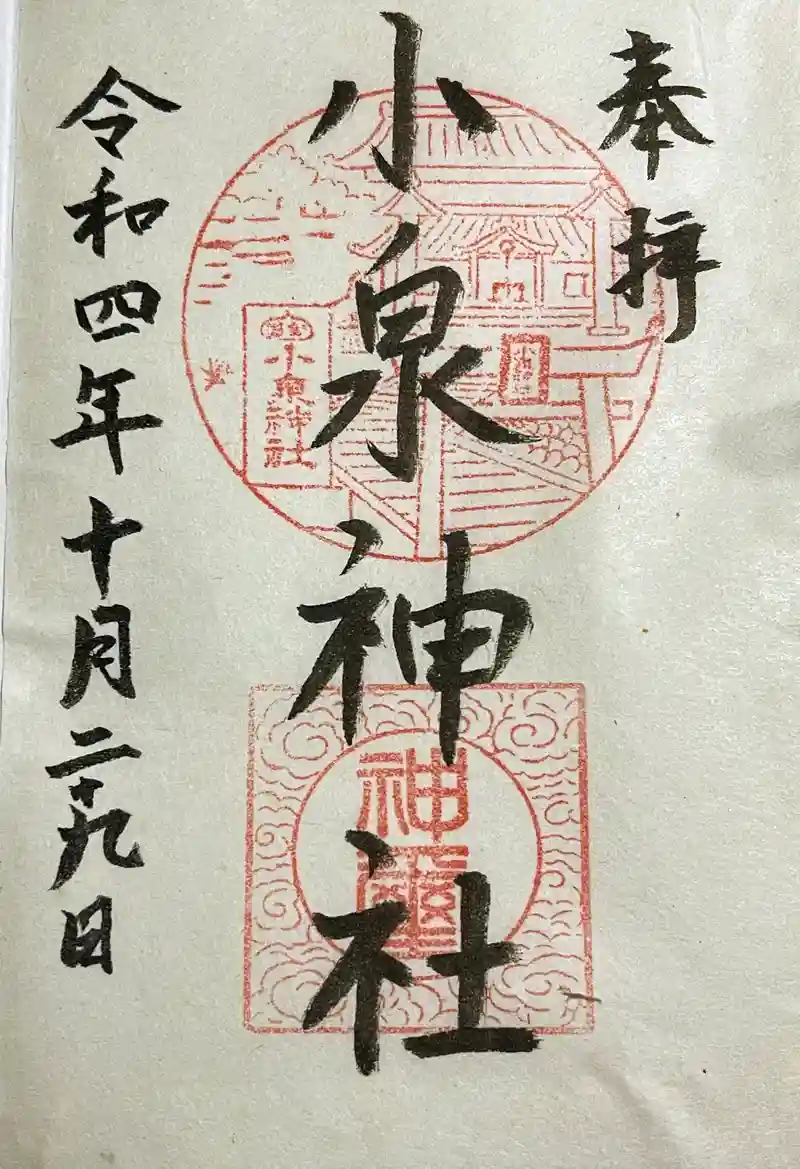 奉拝
小泉神社
小泉神社
令和四年十月二十九日